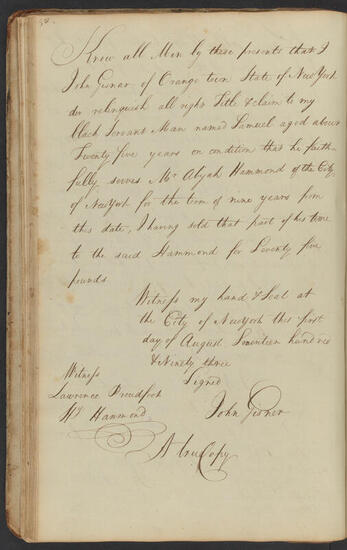 Know all Men by these presents that I
John Gisnar of Orange town State of New York
do relinquish all right Title & claim to my
Black Servant Man named Samuel aged about
Twenty five years on condition that he faith
fully serves Mr Abijah Hammond of the City
of New York for the term of nine years from
this date, I having sold that part of his time
to the said Hammond for Seventy five
pounds
Witness my hand & Seal at
the City of New York this first
day of August Seventeen hundred
& Ninety three
Witness
Signed
Lawrence Proudfoot
Wm Hammond
John Gisner
A true Copy